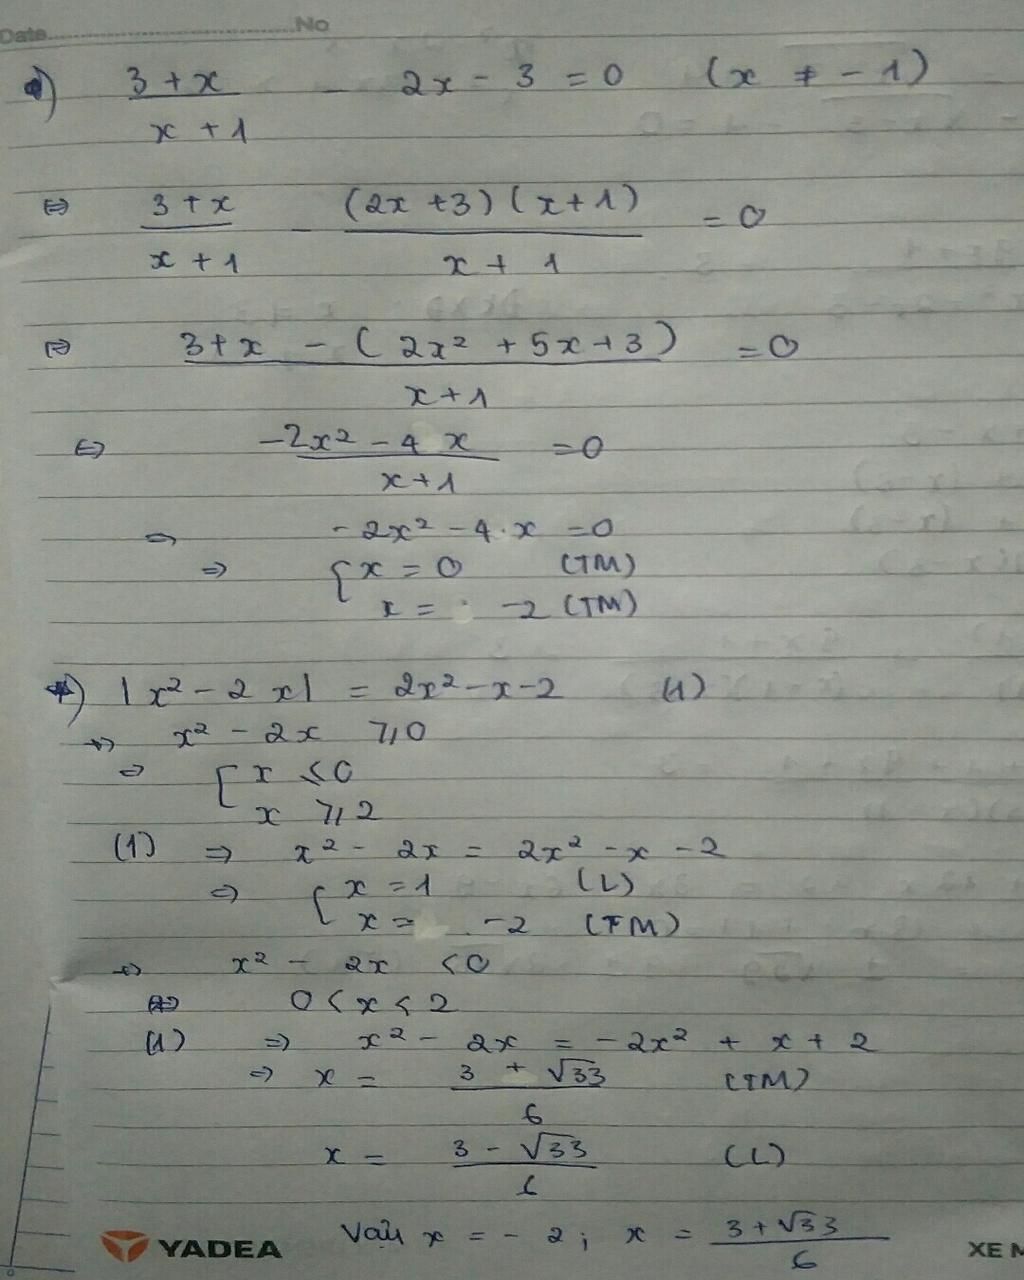 Date.....................................No
d) (3 + x)/(x + 1) - 2x - 3 = 0 (x ≠ - 1)
⇔ (3 + x)/(x + 1) - ((2x + 3)(x + 1))/(x + 1) = 0
⇔ (3 + x - (2x² + 5x + 3))/(x + 1) = 0
⇔ (-2x² - 4x)/(x + 1) = 0
⇒ - 2x² - 4.x = 0
⇒ { x = 0 (TM)
x = -2 (TM)
*) |x² - 2x| = 2x² - x - 2 (1)
+) x² - 2x ≥ 0
⇒ [ x ≤ 0
x ≥ 2
(1) ⇒ x² - 2x = 2x² - x - 2
⇒ { x = 1 (L)
x = -2 (TM)
+) x² - 2x < 0
⇔ 0 < x < 2
(1) ⇒ x² - 2x = - 2x² + x + 2
⇒ x = (3 + √33)/6 (TM)
x = (3 - √33)/6 (L)
Vậy x = - 2 ; x = (3 + √33)/6
YADEA XE M